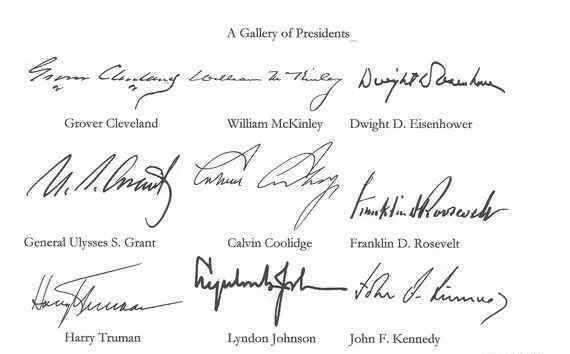 A Gallery of Presidents
Grover Cleveland William McKinley Dwight D. Eisenhower
Grover Cleveland William McKinley Dwight D. Eisenhower
U. S. Grant Calvin Coolidge Franklin D Roosevelt
General Ulysses S. Grant Calvin Coolidge Franklin D. Rosevelt
Harry Truman Lyndon B. Johnson John F. Kennedy
Harry Truman Lyndon Johnson John F. Kennedy